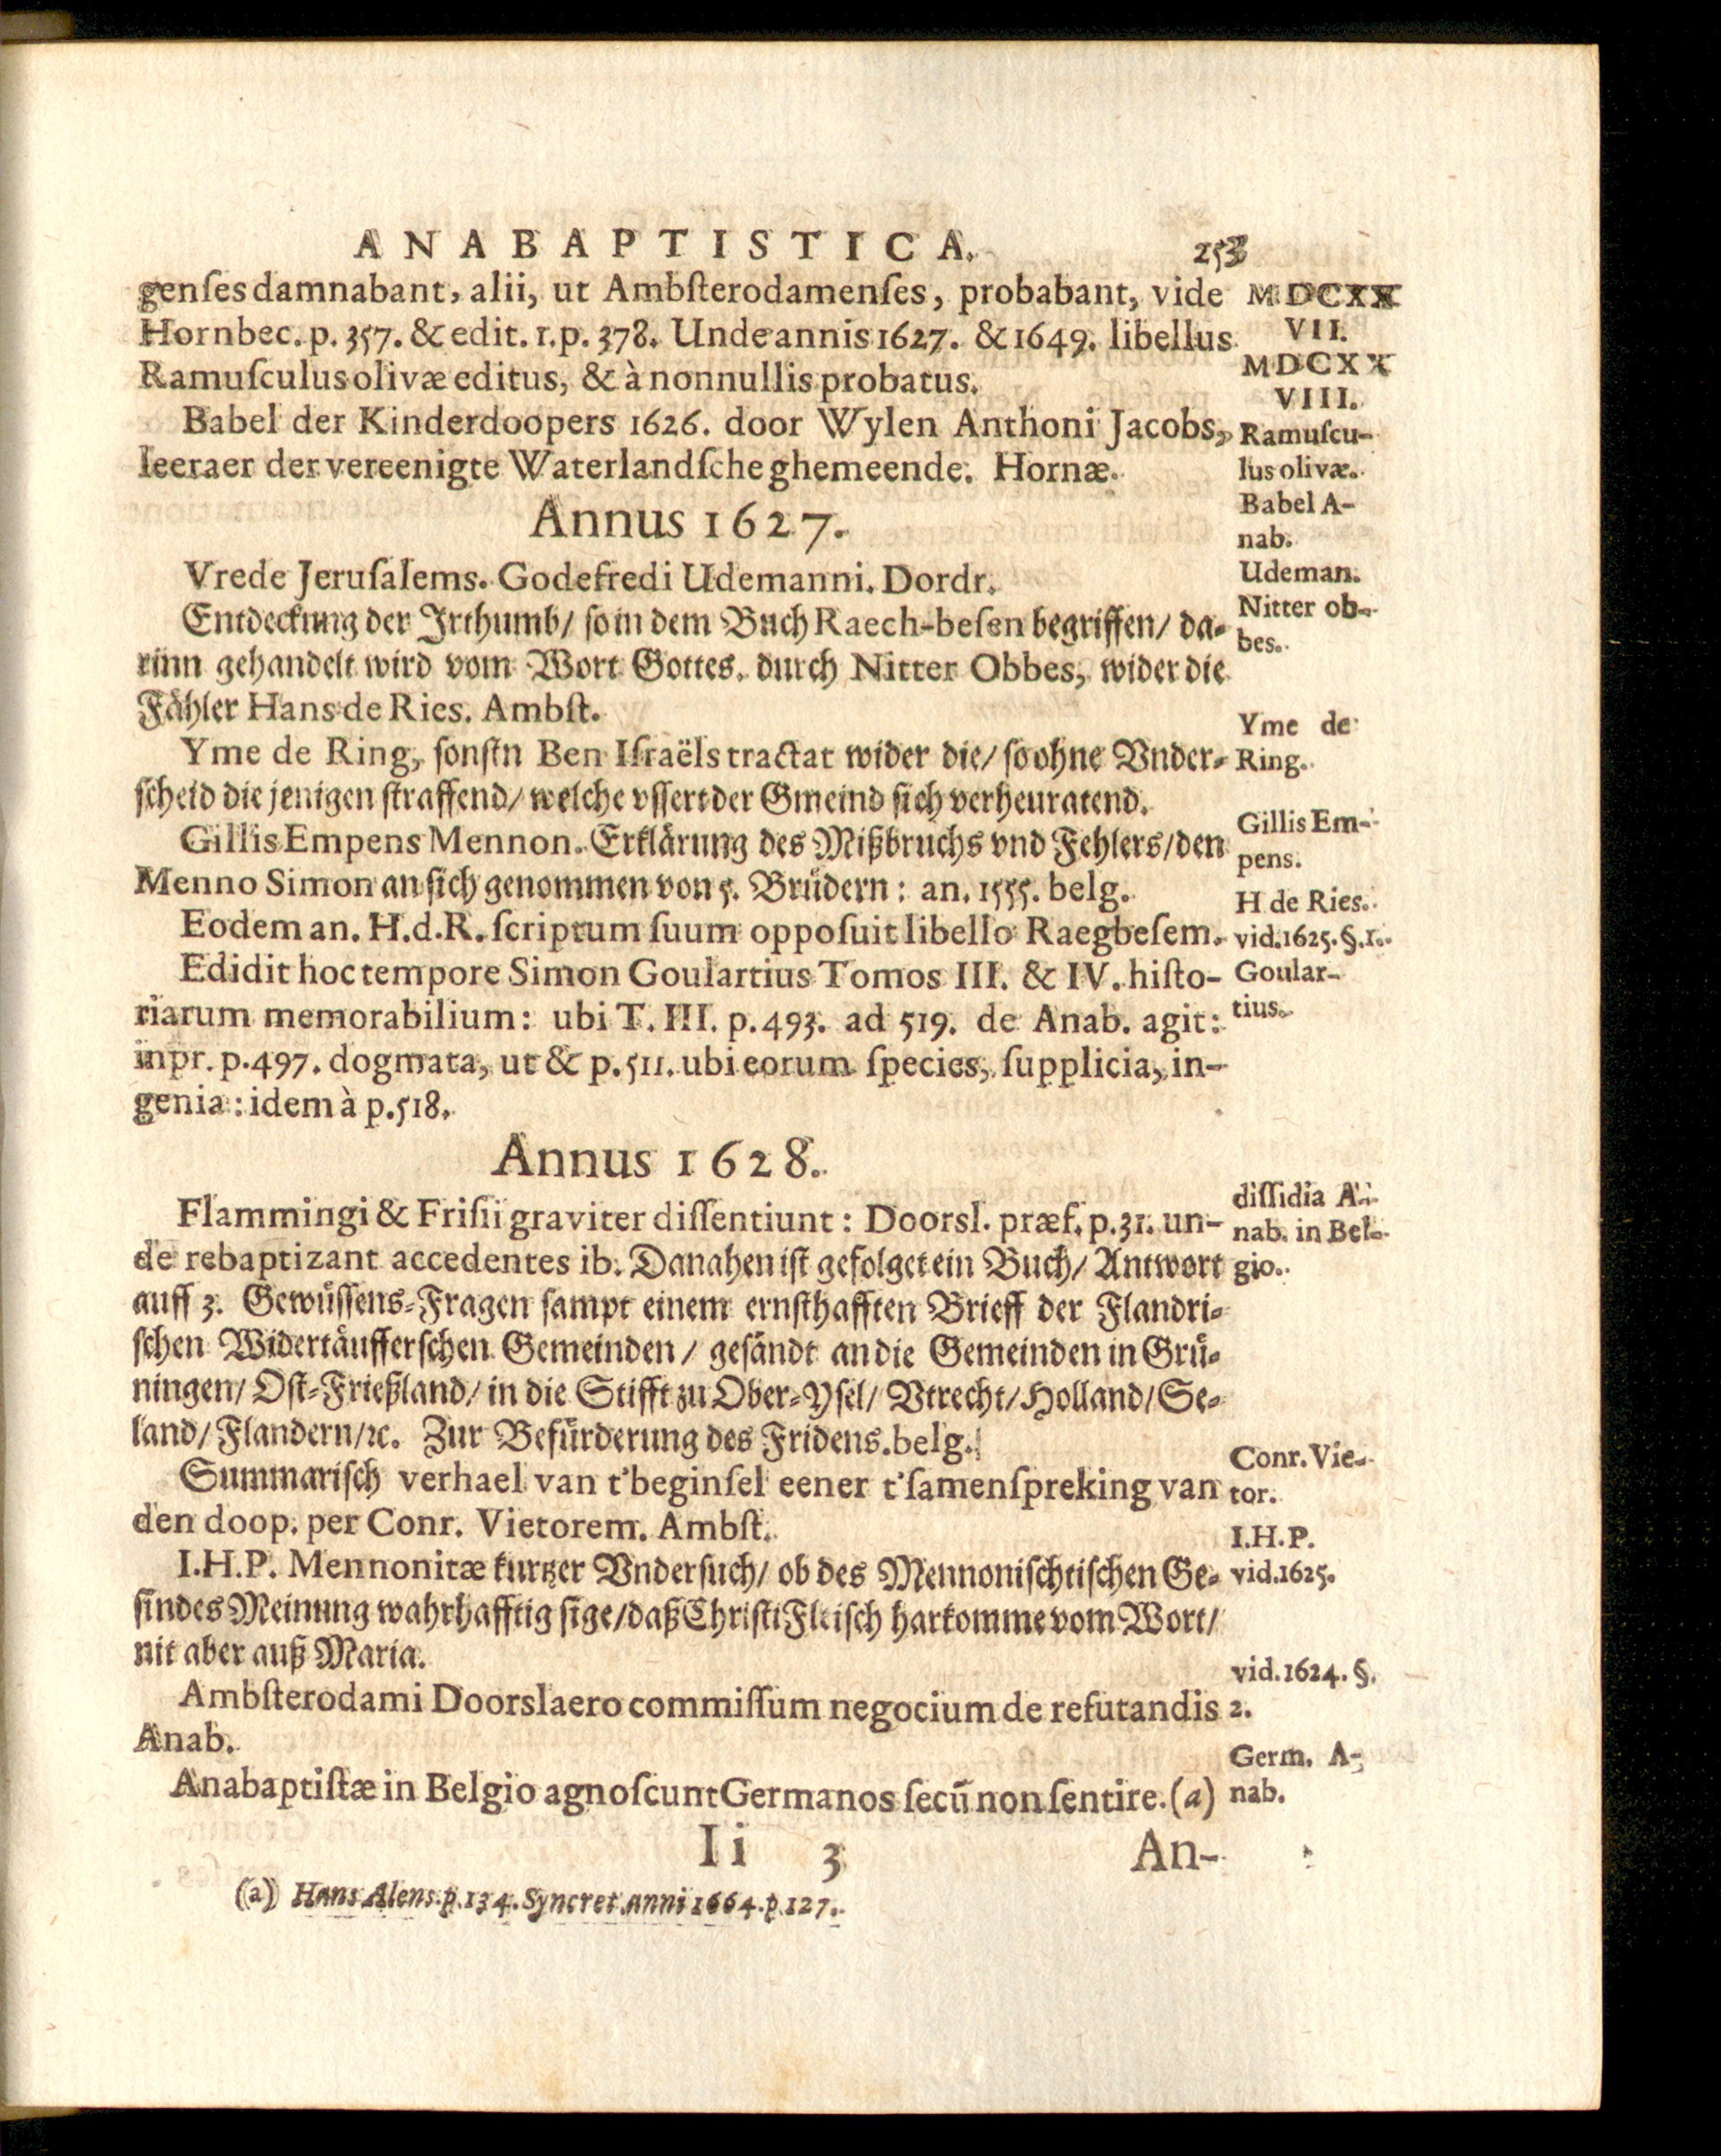 ANABAPTISTICA. 253
genſes damnabant, alii, ut Ambſterodamenſes, probabant, vide
Hornbec. p. 357. & edit. 1. p. 378. Unde annis 1627. & 1649. libellus
Ramuſculus olivæ editus, & à nonnullis probatus.
Babel der Kinderdoopers 1626. door Wylen Anthoni Jacobs,
leeraer der vereenigte Waterlandſche ghemeende. Hornæ.
MDCXX
VII.
MDCXX
VIII.
Ramuſcu-
lus olivæ.
Babel A-
nab.
Annus 1627.
Vrede Jeruſalems. Godefredi Udemanni. Dordr.
Entdeckung der Irthumb/ ſo in dem Buch Raech-beſen begriffen/ da-
rinn gehandelt wird vom Wort Gottes. durch Nitter Obbes, wider die
Fähler Hans de Ries. Ambſt.
Udeman.
Nitter ob-
bes.
Yme de Ring, ſonſtn Ben Iſraëls tractat wider die/ ſo ohne Vnder-
ſcheid die jenigen ſtraffend/ welche vſſert der Gmeind ſich verheuratend.
Yme de
Ring.
Gillis Empens Mennon. Erklärung des Mißbruchs vnd Fehlers/ den
Menno Simon an ſich genommen von 5. Brüdern: an. 1555. belg.
Gillis Em-
pens.
Eodem an. H.d.R. ſcriptum ſuum oppoſuit libello Raegbeſem.
H de Ries.
vid. 1625. §. 1.
Edidit hoc tempore Simon Goulartius Tomos III. & IV. hiſto-
riarum memorabilium: ubi T. III. p. 493. ad 519. de Anab. agit:
inpr. p. 497. dogmata, ut & p. 511. ubi eorum ſpecies, ſupplicia, in-
genia: idem à p. 518.
Goular-
tius.
Annus 1628.
Flammingi & Friſii graviter diſſentiunt: Doorsl. præf. p. 31. un-
de rebaptizant accedentes ib. Danahen iſt gefolget ein Buch/ Antwort
auff 3. Gewüſſens-Fragen ſampt einem ernſthafften Brieff der Flandri-
ſchen Widertäufferſchen Gemeinden/ geſändt an die Gemeinden in Grü-
ningen/ Oſt-Frießland/ in die Stifft zu Ober-Yſel/ Vtrecht/ Holland/ Se-
land/ Flandern/ ꝛc. Zur Befürderung des Fridens. belg.
diſſidia A-
nab. in Bel-
gio.
Summariſch verhael van t'beginſel eener t'ſamenſpreking van
den doop. per Conr. Vietorem. Ambſt.
Conr. Vie-
tor.
I.H.P. Mennonitæ kurtzer Vnderſuch/ ob des Mennoniſchtiſchen Ge-
ſindes Meinung wahrhafftig ſige/ daß Chriſti Fleiſch harkomme vom Wort/
nit aber auß Maria.
I.H.P.
vid. 1625.
Ambſterodami Doorslaero commiſſum negocium de refutandis
Anab.
vid. 1624. §.
2.
Anabaptiſtæ in Belgio agnoſcunt Germanos ſecū non ſentire. (a)
Germ. A-
nab.
Ii 3 An-
(a) Hans Alens. p. 134. Syncret. anni 1664. p. 127.